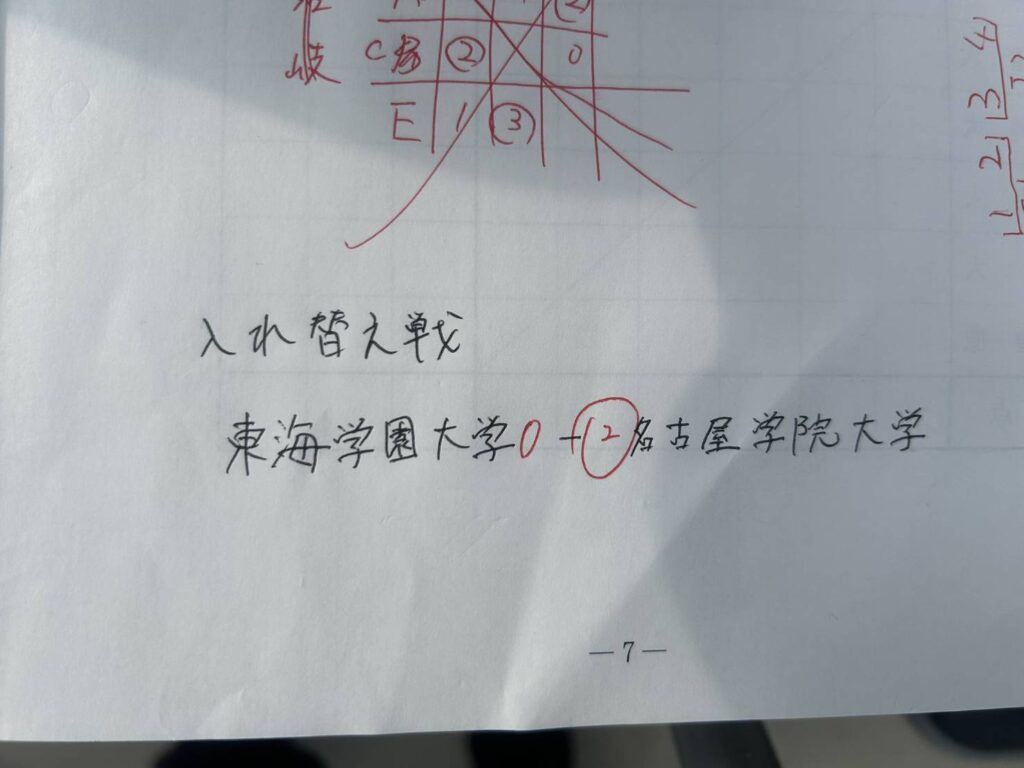 岐 C名 ② 0
E 1 ③
1 2 3 4
入れ替え戦
東海学園大学 0 - ② 名古屋学院大学
— 7 —